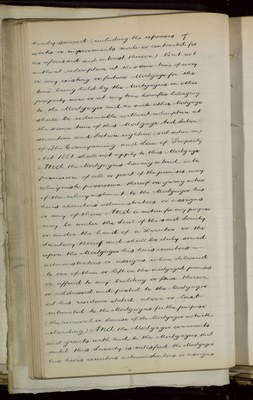 hereby secured (including the expenses of
works or improvements made or contracted for
as aforesaid and interest thereon) But not
without redemption at the same time of every
or any existing or future Mortgage for the
time being held by the Mortgagees on other
property now or at any time hereafter belonging
to the Mortgagor and no such other Mortgage
shall be redeemable without redemption at
the same time of this Mortgage And that
seventeen and
of The Conveyancing and Law of Property
Act 1881 shall not apply to this Mortgage
And the Mortgagees having entered into
possession of all or part of the premises may
relinquish possession thereof on giving notice
of the relinquishment to the Mortgagor his
heirs executors administrators or assigns
or any of them And a notice for any purpose
may be under the Seal of the said Society
or under the hand of a Director or the
Secretary thereof and shall be duly served
upon the Mortgagor his heirs executors
administrators or assigns when delivered
to one of them or left on the mortgaged premises
or affixed to any building or place thereon
or addressed and posted to the Mortgagor
at his residence stated above or last
intimated to the Mortgagees for the purpose
(the removal or decease of the Mortgagor notwith-
standing) And the Mortgagor covenants
and agrees with and to the Mortgagees that
until this Security is satisfied the Mortgagor
his heirs executors administrators or assigns